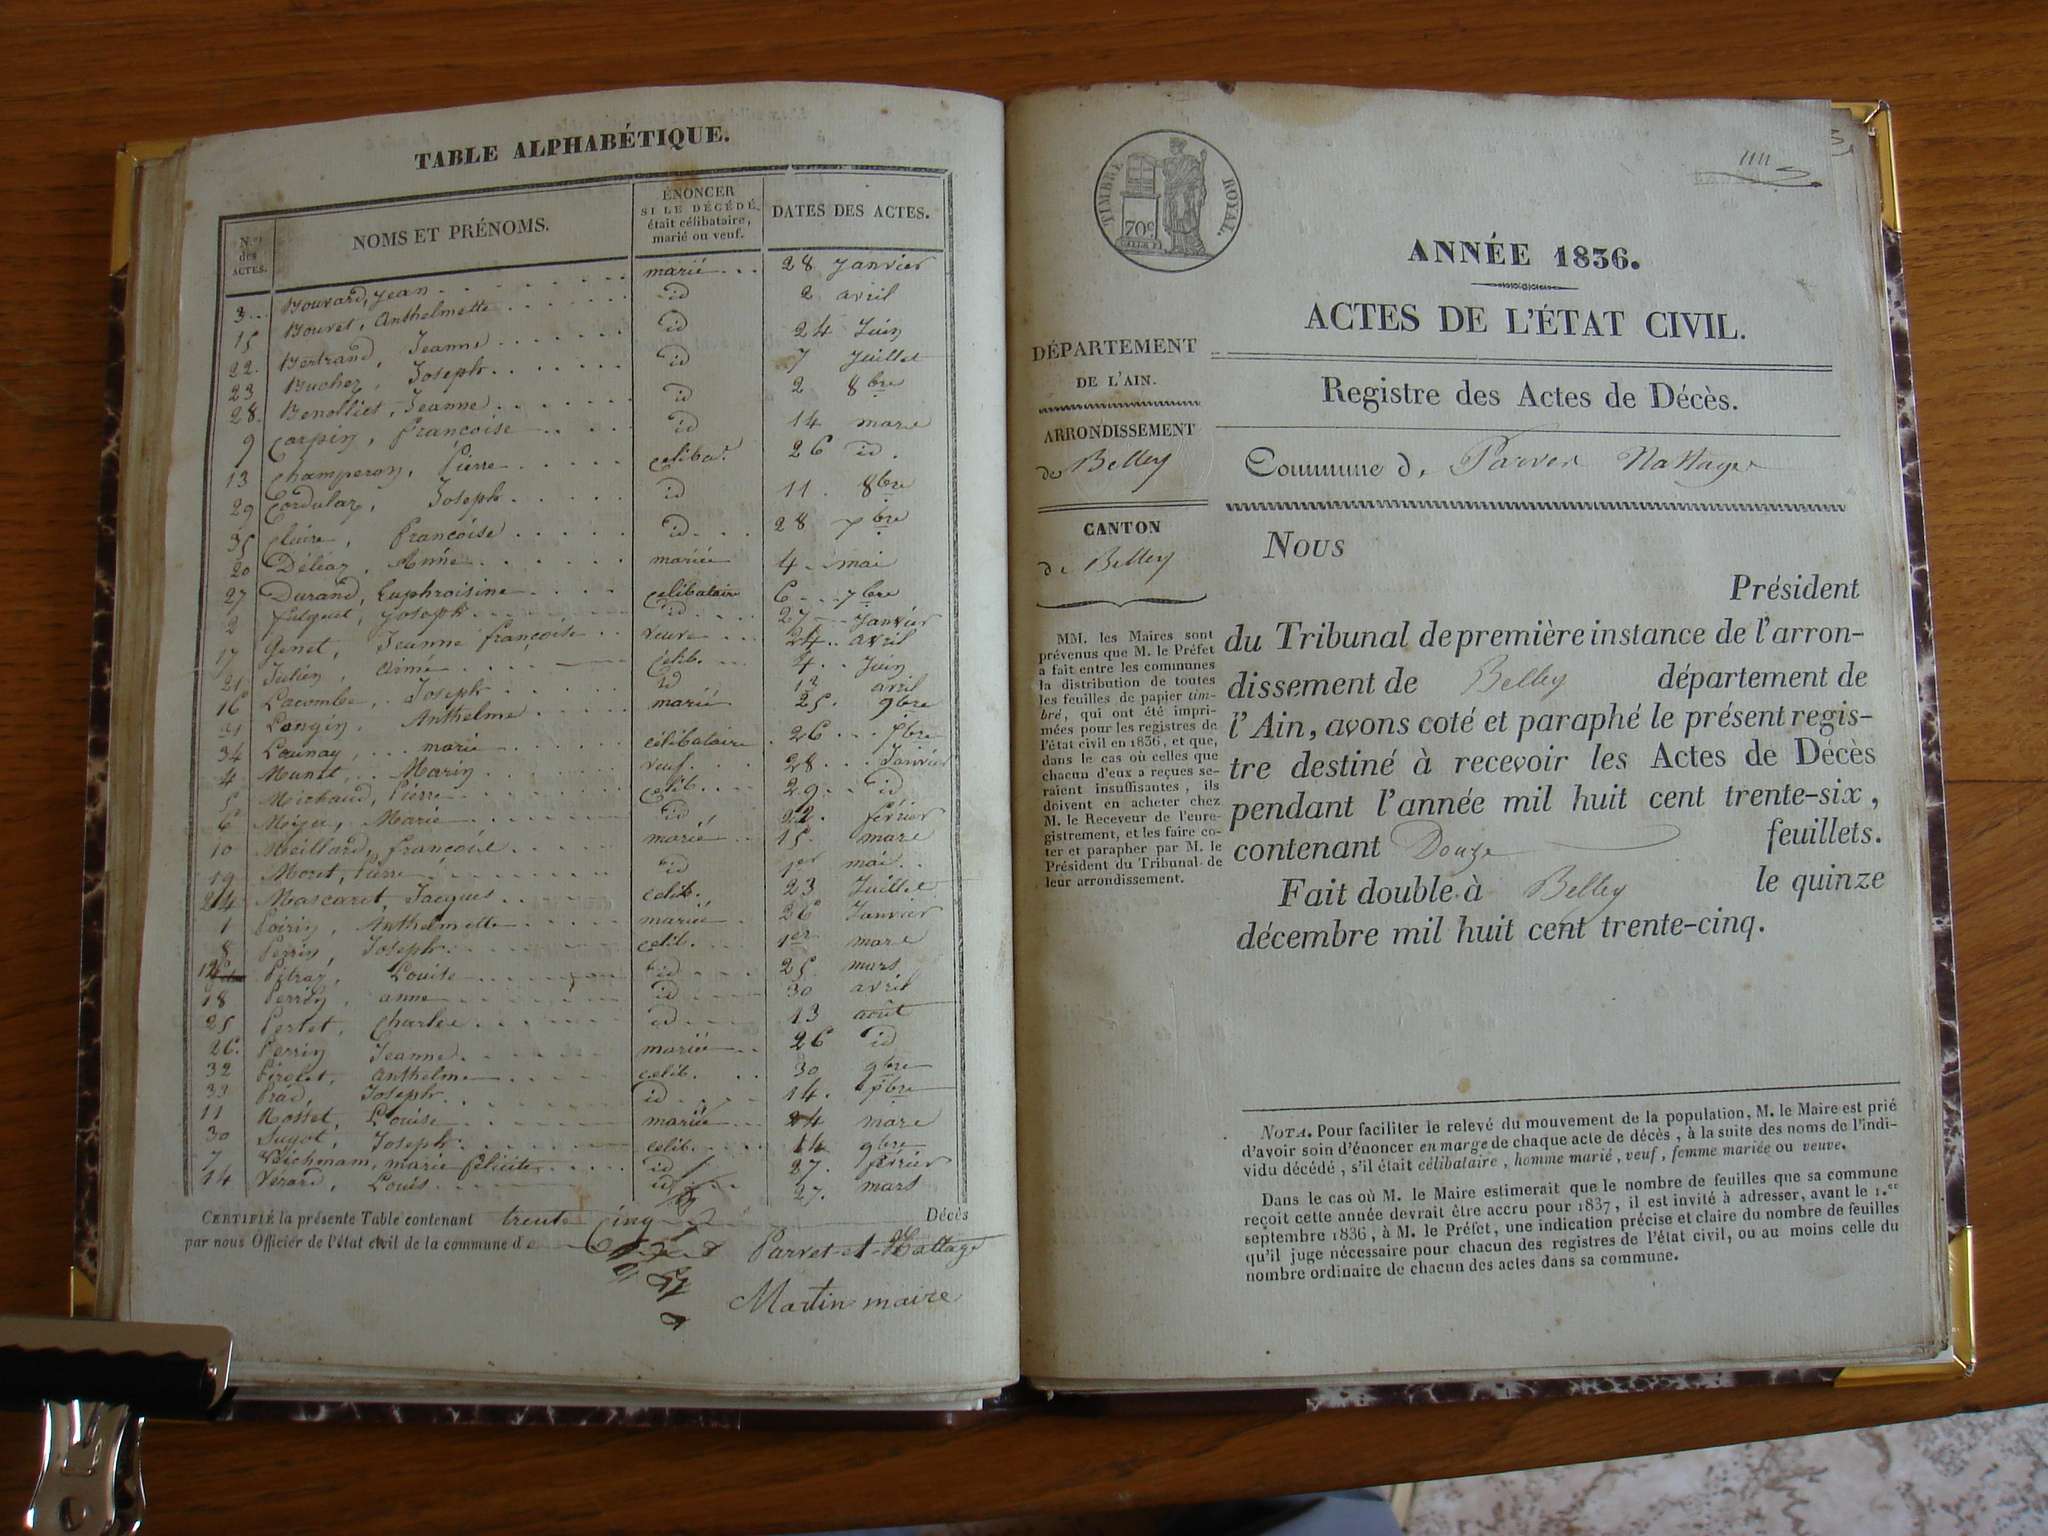 TABLE ALPHABÉTIQUE.
N.os des ACTES. NOMS ET PRÉNOMS. ÉNONCER SI LE DÉCÉDÉ était célibataire, marié ou veuf. DATES DES ACTES.
3 Bouvard, Jean marié 28 Janvier
15 Bouvet, Anthelmette id 2 avril
22 Bertrand, Jeanne id 24 Juin
23 Buchez, Joseph id 7 Juillet
28 Benolliet, Jeanne id 2 8bre
9 Carpin, françoise id 14 mars
13 Champeron, Pierre celibat. 26 id.
29 Cordulaz, Joseph id 11. 8bre
35 Claire, françoise id 28
20 Déléaz, Anne mariée 4 mai
27 Durand, Euphroisine celibataire 6 7bre
2 falquet, Joseph id 27 Janvier
17 Genet, Jeanne françoise veuve 24 avril
21 Julien, Aimé célib. 4 Juin
16 Lacombe, Joseph id 13 avril
31 Longin, Anthelme marié 25. 9bre
34 Launay, marie célibataire 26
4 Munet, Marin veuf 28 Janvier
5 Michaud, Pierre celib. 29 id
6 Marie id 22. février
10 Meillard, françoise mariée 15. mars
19 Moret, Pierre id 1er mai
24 Mascaret, Jacques celib. 23 Juillet
1 Poirin, Anthelmette mariée 26 Janvier
8 Perrin, Joseph celib. 1er mars
12 Pitraz, Louise id 25. mars
18 Perrin, anne id 30 avril
25 Pertet, Charles id 13 août
26. Perrin Jeanne mariée 26 id
32 Pirolet, Anthelme celib. 30 9bre
33 Joseph id 14.
11 Rosset, Louise mariée 24 mars
30 Sugot, Joseph celib. 14 9bre
7 Veichmam, marie félicité id 27. février
14 Verard, Louis id 27. mars
CERTIFIÉ la présente Table contenant trente Cinq Décès
par nous Officier de l'état civil de la commune de Parvet-et-Nattage
Martin maire
TIMBRE ROYAL.
70c
ANNÉE 1836.
ACTES DE L'ÉTAT CIVIL.
DÉPARTEMENT
DE L'AIN.
Registre des Actes de Décès.
ARRONDISSEMENT
de Belley
Commune de Parves Nattages
CANTON
de Belley
MM. les Maires sont
prévenus que M. le Préfet
a fait entre les communes
la distribution de toutes
les feuilles de papier tim-
bré, qui ont été impri-
mées pour les registres de
l'état civil en 1836, et que,
dans le cas où celles que
chacun d'eux a reçues se-
raient insuffisantes, ils
doivent en acheter chez
M. le Receveur de l'enre-
gistrement, et les faire co-
ter et parapher par M. le
Président du Tribunal de
leur arrondissement.
Nous
Président
du Tribunal de première instance de l'arron-
dissement de Belley département de
l'Ain, avons coté et paraphé le présent regis-
tre destiné à recevoir les Actes de Décès
pendant l'année mil huit cent trente-six,
contenant Douze feuillets.
Fait double à Belley le quinze
décembre mil huit cent trente-cinq.
NOTA. Pour faciliter le relevé du mouvement de la population, M. le Maire est prié
d'avoir soin d'énoncer en marge de chaque acte de décès, à la suite des noms de l'indi-
vidu décédé, s'il était célibataire, homme marié, veuf, femme mariée ou veuve.
Dans le cas où M. le Maire estimerait que le nombre de feuilles que sa commune
reçoit cette année devrait être accru pour 1837, il est invité à adresser, avant le 1.er
septembre 1836, à M. le Préfet, une indication précise et claire du nombre de feuilles
qu'il juge nécessaire pour chacun des registres de l'état civil, ou au moins celle du
nombre ordinaire de chacun des actes dans sa commune.